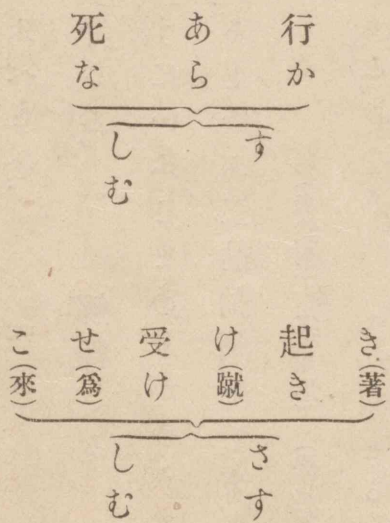 行か
あら
死な
す
しむ
き(著)
起き
け(蹴)
受け
せ(爲)
こ(來)
さす
しむ